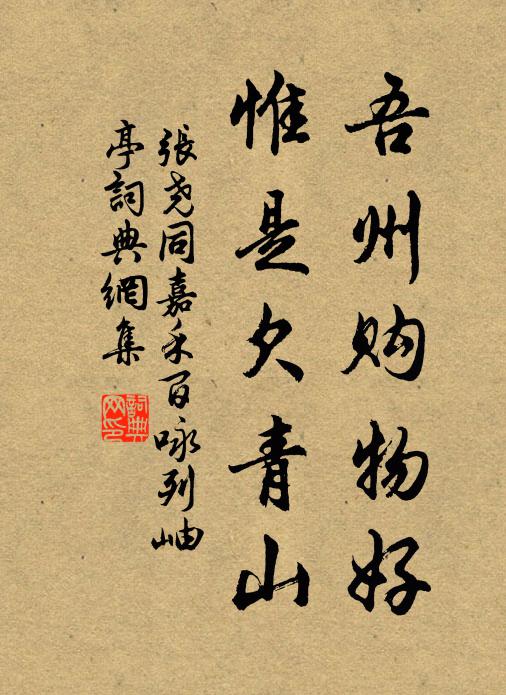 吾州购物好
惟是欠青山
張堯同嘉禾百咏列岫
亭詞典網集
詞典
网印